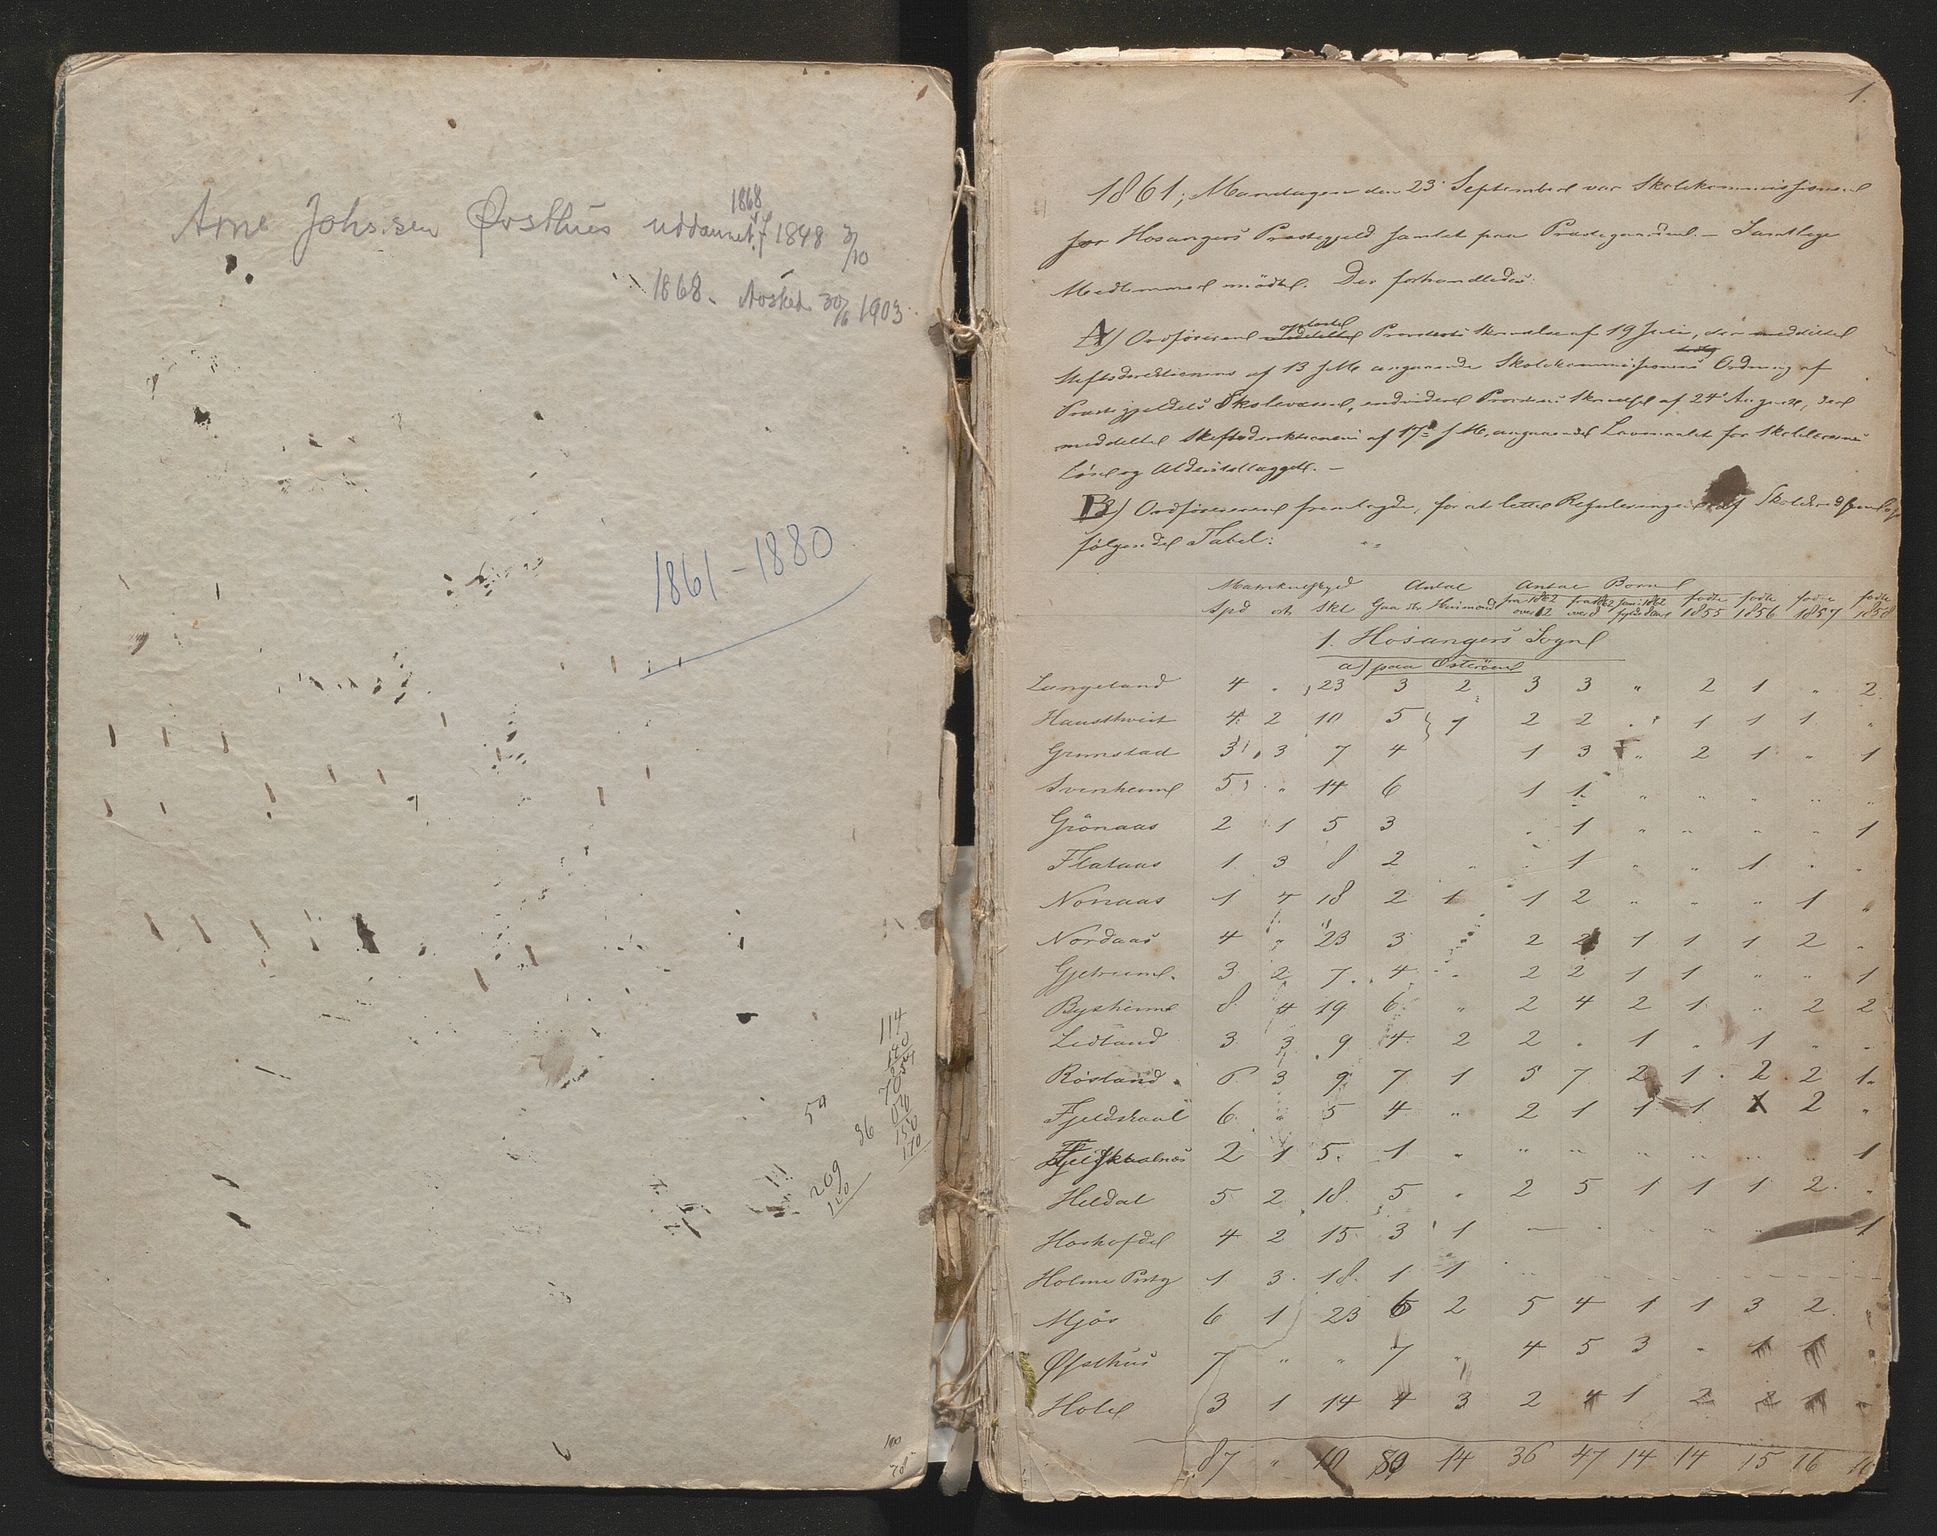 1868
Arne Johs.sen Øvsthus uddannet f 1848 3/10
1868. Avsked 30/6 1903.
1861 - 1880
114
54
36
150
110
209
100
78
1.
1861, Mandagen den 23 September var Skolekommissionen
for Hosangers Præstegjeld samlet paa Præstegaarden. - Samtlige
Medlemmer mødte. Der forhandledes:
A) Ordføreren oplæste Provstens Skrivelse af 19 Juli, der meddelte
Stiftsdirektionens af 13 s. M. angaaende Skolekommissionens Ordning af
Præstegjeldets Skolevæsen, endvidere Provstens Skrivelse af 24 August, der
meddelte Stiftsdirektionens af 17de s. M. angaaende Lovmaalet for Skolelærernes
Løn og Alderstillægget. -
B) Ordføreren fremlagde, for at lette Reguleringen af
følgende Tabel:
Matrikulskyld Antal Antal Børn
Spd ort Skl Gaardbr. Huusmænd fra 1862 over 12 fra 1862 over 8 Jan: 1862 fyldt 8 Aar fødte 1855 fødte 1856 fødte 1857 fødte 1858
1. Hosangers Sogn
a) paa Osterøen
Langeland 4 " 23 3 2 3 3 " 2 1 " 2
Hausthveit 4 2 10 5 1 2 2 " 1 1 1 "
Grimstad 3 3 7 4 1 3 " 2 1 " 1
Svenheim 5 " 14 6 1 1 " " " " "
Grönaas 2 1 5 3 " 1 " " " " 1
Flataas 1 3 8 2 " " 1 " " 1 " "
Nonaas 1 4 18 2 1 1 2 " " " 1 "
Nordaas 4 " 23 3 " 2 2 1 1 1 2 "
Gjetveim 3 2 7 4 " 2 2 1 1 " " 1
Bysheim 8 4 19 6 " 2 4 2 1 " 2 2
Lidland 3 3 9 4 2 2 " 1 " 1 " "
Røsland 6 3 9 7 1 5 7 2 1 2 2 1
Fjeldskaal 6 " 5 4 " 2 1 1 1 1 2 "
Fjeldskaalnes 2 1 5 1 " " " " " " " 1
Heldal 5 2 18 5 " 2 5 1 1 1 2 "
Hoshofde 4 2 15 3 1 - " " " " 1
Holme Prstg 1 3 18 1 1 " " " " " " "
Mjøs 6 1 23 6 2 5 4 1 1 3 2 "
Øfsthus 7 " " 7 " 4 5 3 " 1 1 "
Hole 3 1 14 4 3 2 4 1 2 2 1 "
87 " 10 80 14 36 47 14 14 15 16 10